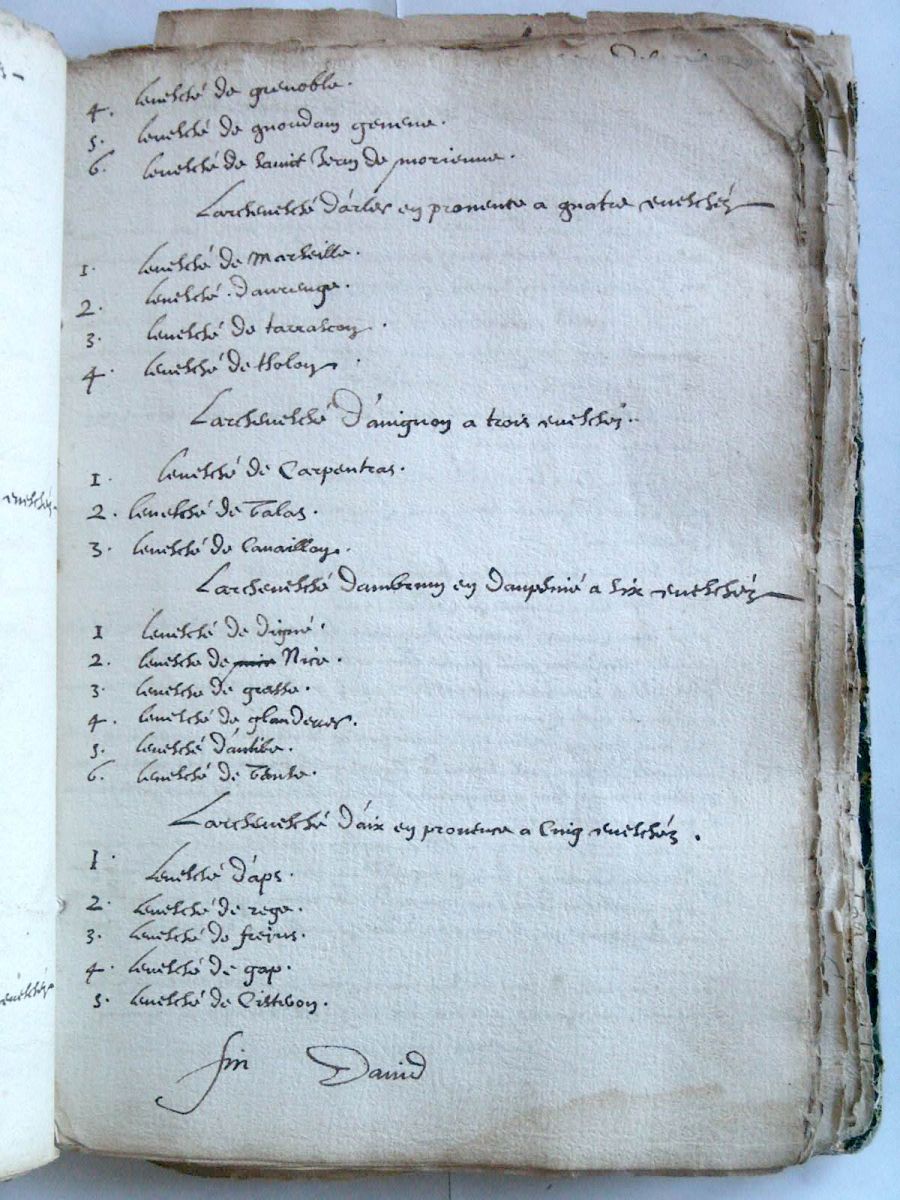 4. levesché de grenoble.
5. levesché de geneve.
6. levesché de sainct Jean de morienne.
Larchevesché d'arles en provence a quatre eveschéz
1. levesché de Marseille.
2. levesché daurienge.
3. levesché de tarrascon.
4. levesché de tholon.
Larchevesché D'avignon a trois eveschéz.
1. levesché de Carpentras.
2. levesché de Talas.
3. levesché de Cavaillon.
Larchevesché dambrun en Dauphiné a six eveschéz
1 levesché de digné.
2. levesche de Nice.
3. levesche de grasse.
4. levesché de glandeves.
5. levesché d'antibe.
6. levesché de Vente.
Larchevesché d'aix en provence a cinq eveschéz.
1. levesché d'aps.
2. levesché de rege.
3. levesché de frejus.
4. levesché de gap.
5. levesché de Cisteron.
fin David
eveschéz.
eveschéz